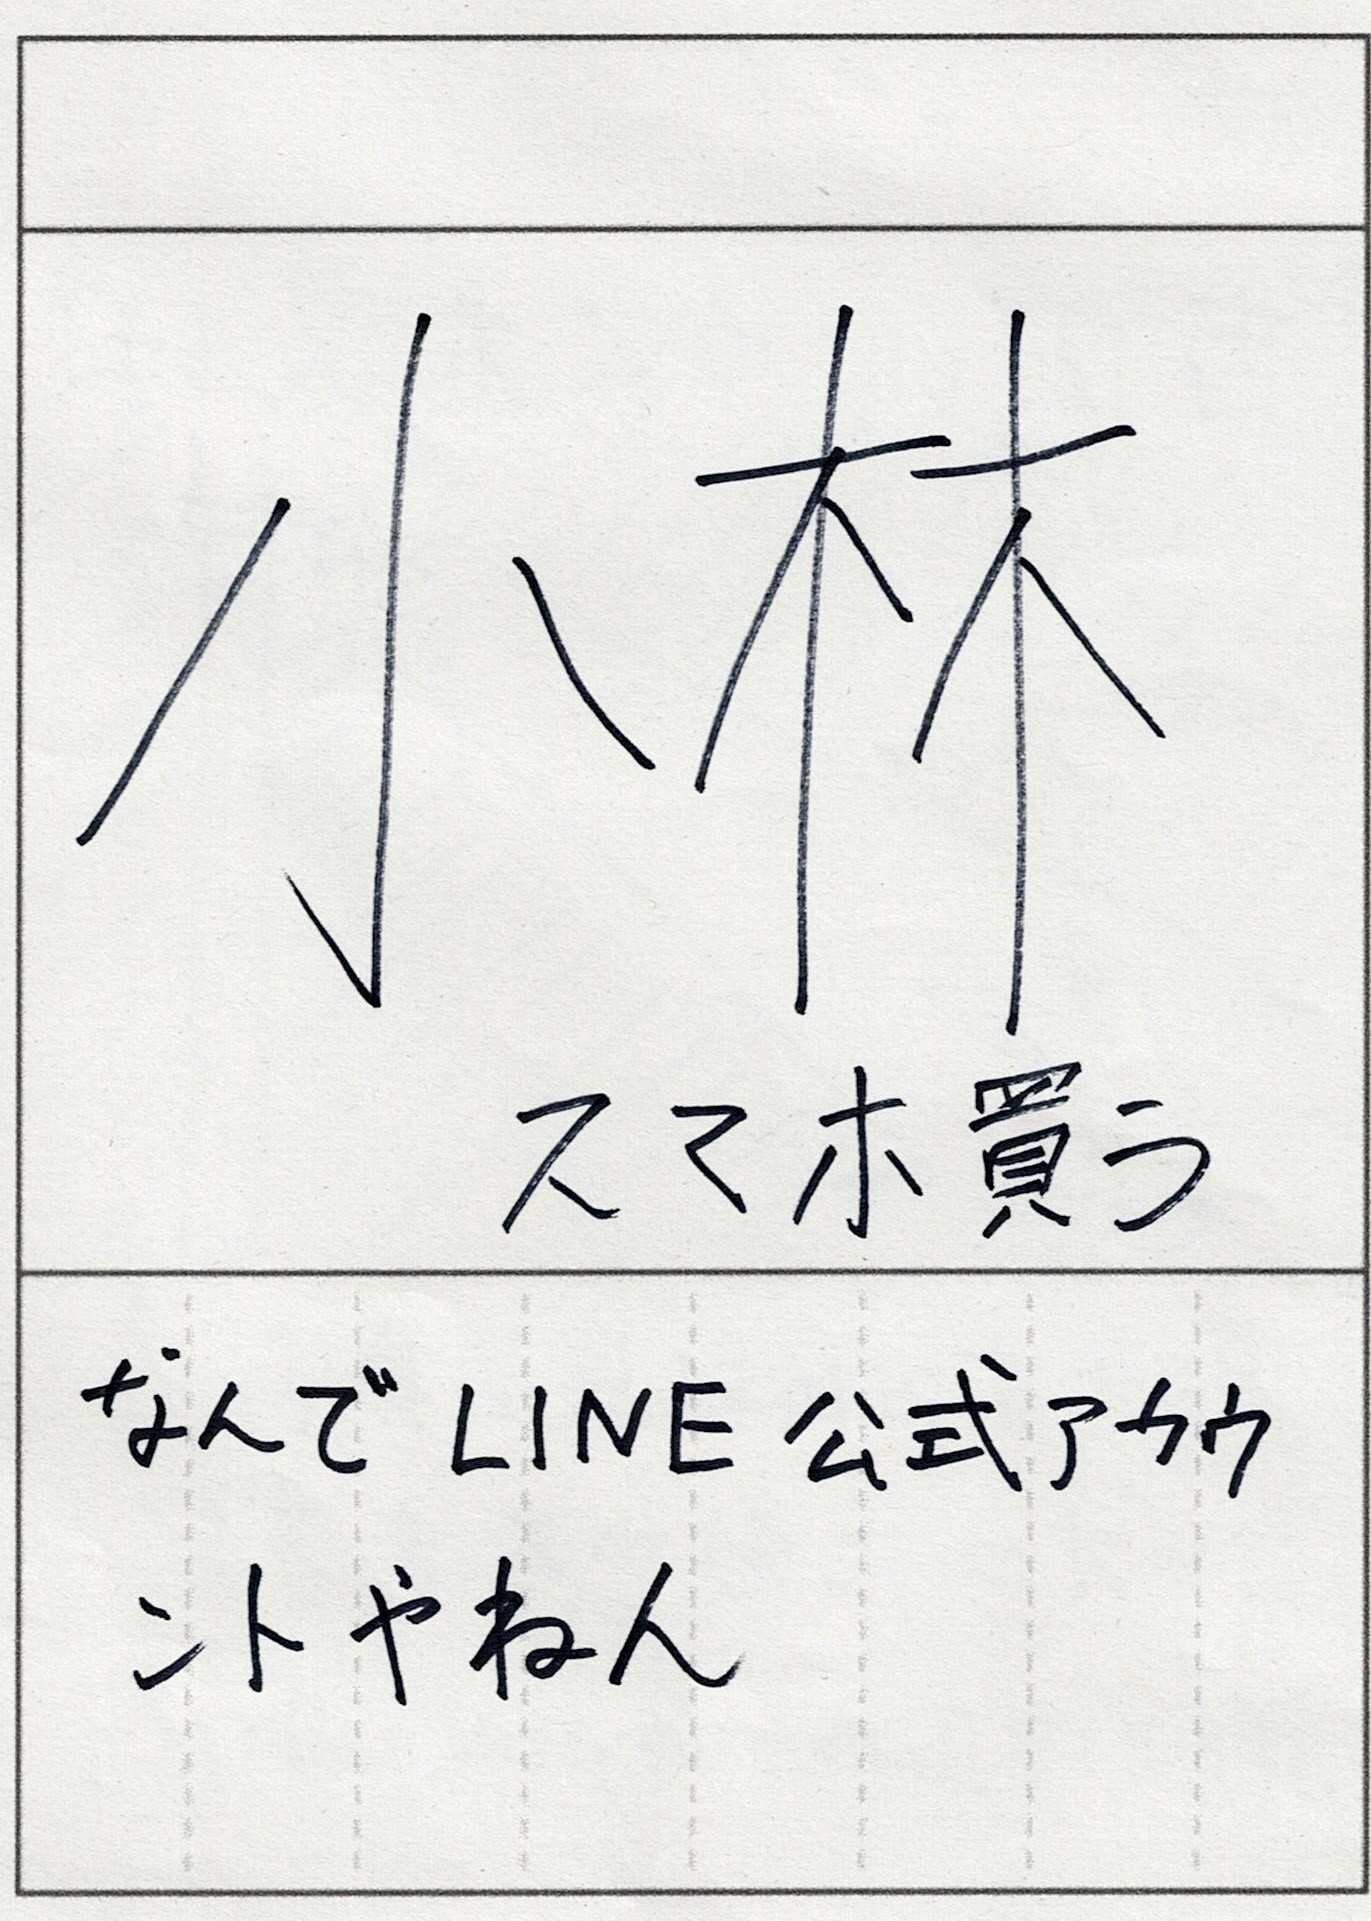 小林
スマホ買う
なんでLINE公式アカウ
ントやねん